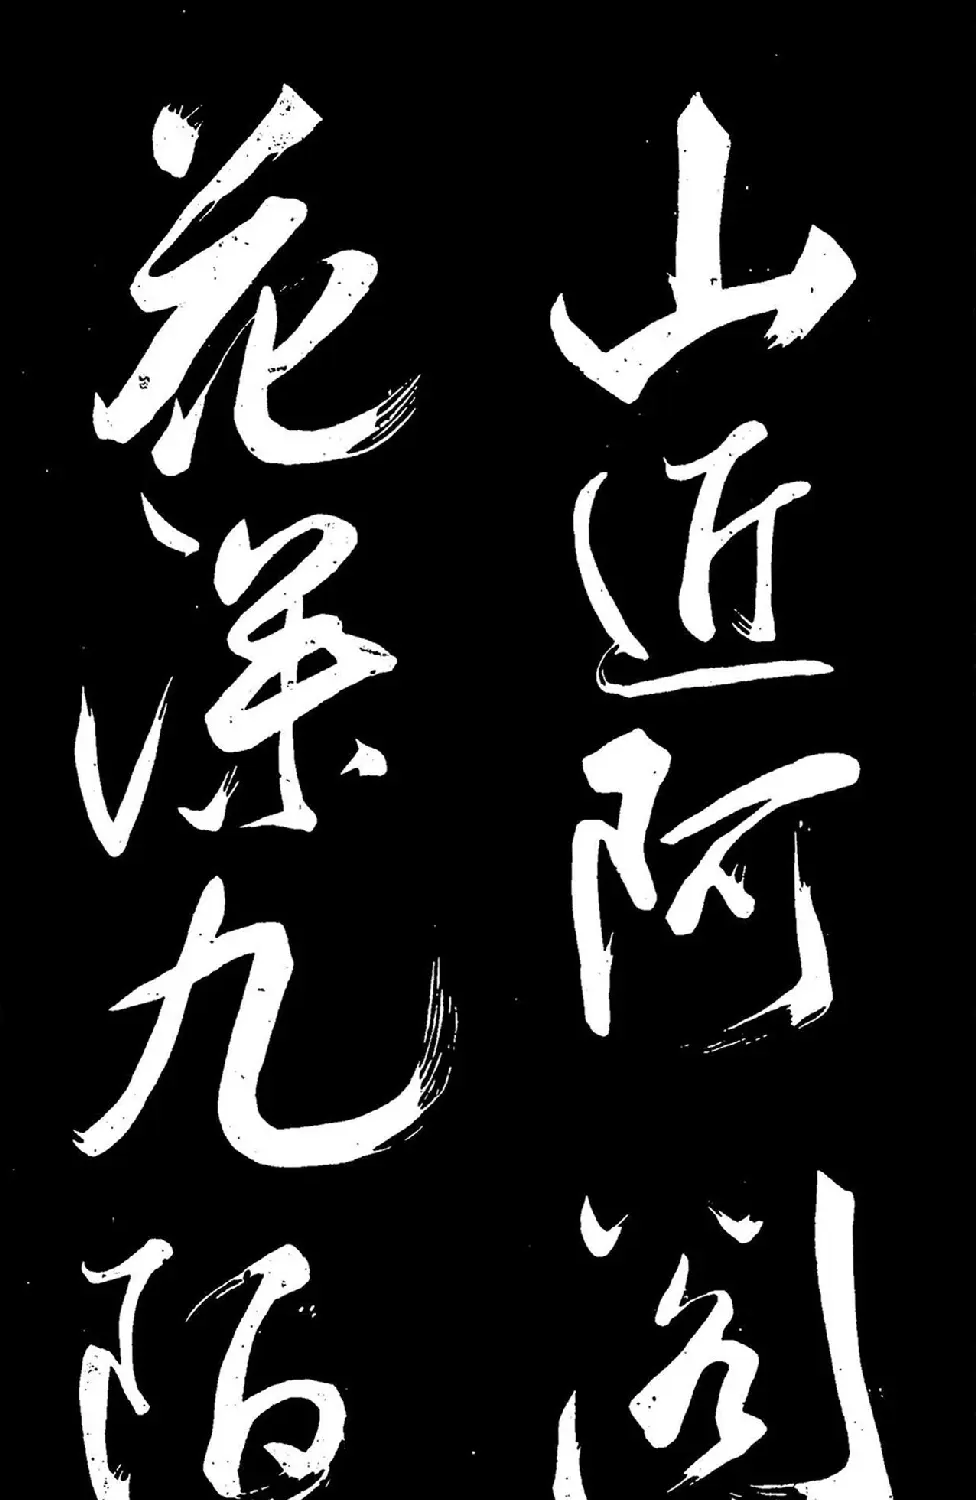 山近阿閣
花深九陌